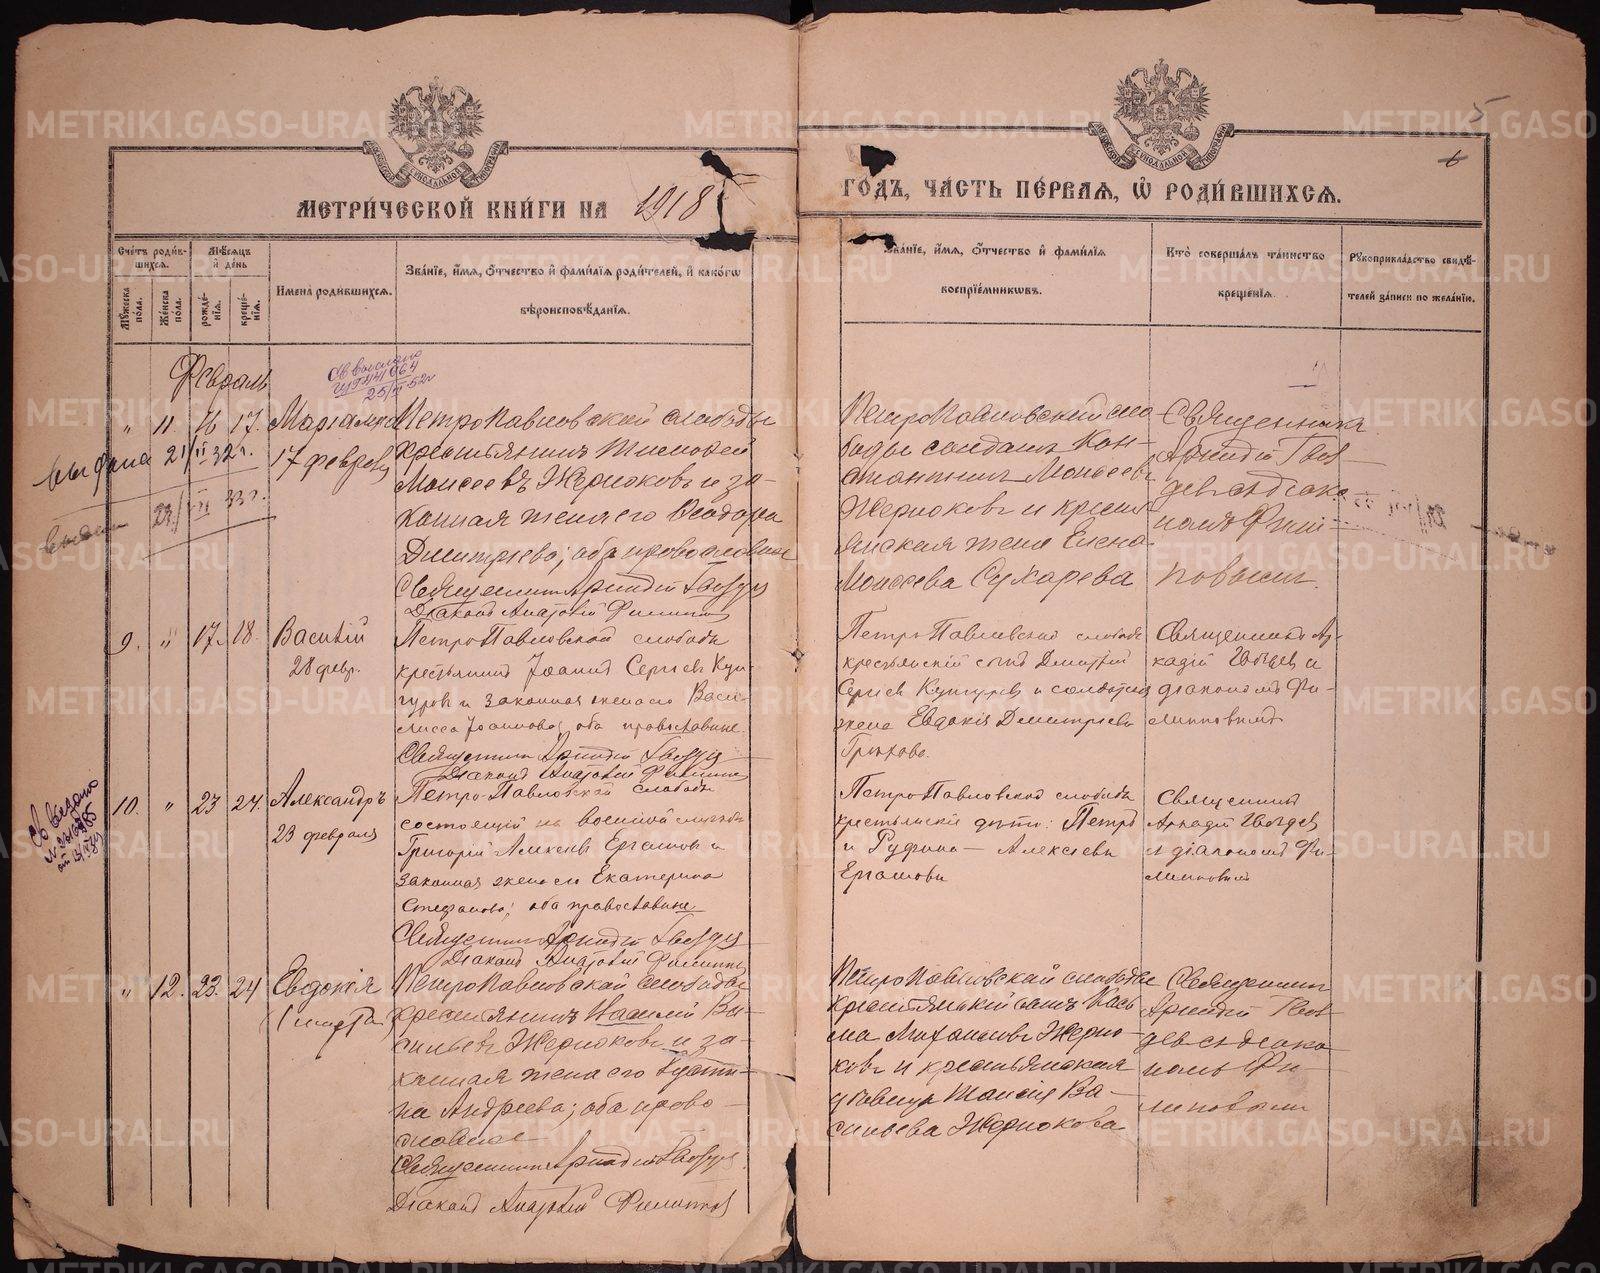 МЕТРИ́ЧЕСКОЙ КНИ́ГИ НА 1918
ГО́ДЪ, ЧА́СТЬ ПЕ́РВАѦ, Ѿ РОДИ́ВШИХСѦ.
5
6
Сче́тъ роди́вшихсѧ.
Мꙋ́жеска пола.
Же́нска пола.
Мѣ́сѧцъ и҆ де́нь
рожде́нїѧ.
креще́нїѧ.
Имена̀ роди́вшихсѧ.
Зва́нїе, и҆́мѧ, ѻ҆́тчество и҆ фами́лїѧ роди́телей, и҆ како́гѡ
вѣроисповѣ́данїѧ.
Зва́нїе, и҆́мѧ, ѻ҆́тчество и҆ фами́лїѧ
воспрїе́мникѡвъ.
Кто̀ соверша́лъ та́инство
креще́нїѧ.
Рꙋкоприкла́дство свидѣ́телей за́писи по жела́нїю.
Февраль
" 11. 16 17.
17 февр
Петропавловской слободы
крестьянинъ Тимофей
Моисеевъ Жерноковъ и за-
конная жена его Ѳеодора
Димитриева; оба православные
Священникъ Аркадій Гвоздевъ
Діаконъ Анатолій Филиппов
Петропавловской сло
боды солдатъ Кон-
стантинъ Моисеевъ
Жерноковъ и кресть
янская жена Елена
Моисеева Сухарева
Священникъ
Аркадій Гвоз
девъ съ діако
номъ Фили-
повымъ.
9. " 17. 18. Василій
28 февр.
Петро-Павловской слободы
крестьянинъ Іоаннъ Сергіевъ Кун-
гуровъ и законная жена его Васи-
лисса Іоаннова; оба православные.
Священникъ Аркадій Гвоздевъ
Діаконъ Анатолій Филиппов
Петро-Павловской слободы
крестьянскій сынъ Димитрій
Сергіевъ Кунгуровъ и солдатская
жена Евдокія Димитріева
Священникъ Ар-
кадій Гвоздевъ и
діакономъ Фи-
липповымъ
10. " 23 24. Александръ
23 февраля
Петро-Павловской слободы
состоящій на военной службѣ
Григорій Алексеевъ Ергашовъ и
законная жена его Екатерина
Стефанова; оба православные
Священникъ Аркадій Гвоздевъ
Діаконъ Анатолій Филиппов
Петро-Павловской слободы
крестьянскіе дѣти: Петръ
и Руфина — Алексеевы
Ергашовы
Священникъ
Аркадій Гвоздевъ
и діакономъ Фи-
липповымъ
" 12. 23. 24 Евдокія
1 марта
Петропавловской слободы
крестьянинъ Василій Ва-
сильевъ Жерноковъ и за-
конная жена его Густи-
на Андреева; оба право-
славные
Священникъ Аркадій Гвоздевъ
Діаконъ Анатолій Филиппов
Петропавловской слободы
крестьянскій сынъ Косьма
Жерно-
ковъ и крестьянская
девица Таисія Ва-
сильева Жернокова
Священникъ
Аркадій Гвоз
девъ съ діако
номъ Фи-
липовымъ
METRIKI.GASO-URAL.RU